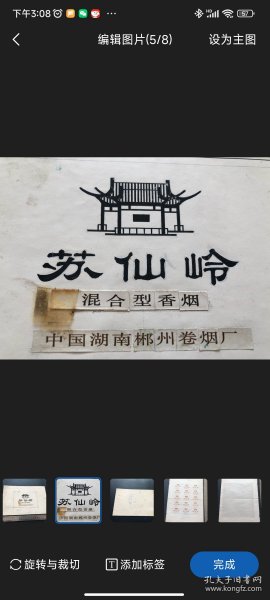 下午3:08
57
编辑图片(5/8)
设为主图
苏仙岭
混合型香烟
中国湖南郴州卷烟厂
旋转与裁切
添加标签
完成
孔夫子旧书网
www.kongfz.com